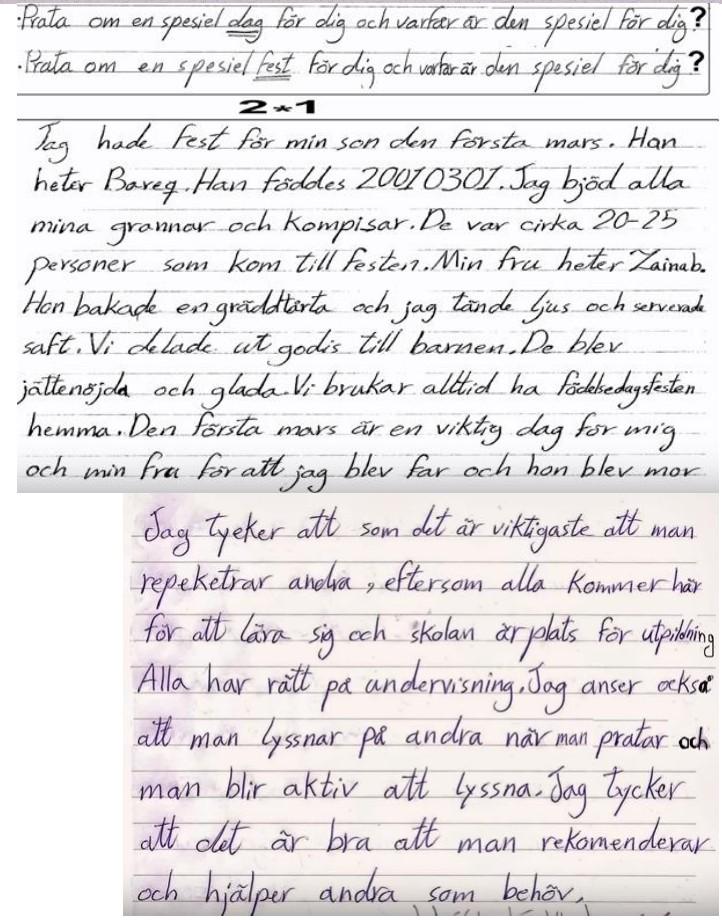 ·Prata om en spesiel dag för dig och varför är den spesiel för dig?
·Prata om en spesiel fest för dig och varför är den spesiel för dig?
2*1
Jag hade fest för min son den första mars. Han
heter Bareq. Han föddes 20010301. Jag bjöd alla
mina grannar och kompisar. De var cirka 20-25
personer som kom till festen. Min fru heter Zainab.
Hon bakade en gräddtårta och jag tände ljus och serverade
saft. Vi delade ut godis till barnen. De blev
jättenöjda och glada. Vi brukar alltid ha födelsedagsfesten
hemma. Den första mars är en viktig dag för mig
och min fru för att jag blev far och hon blev mor
Jag tycker att som det är viktigaste att man
repeketrar andra, eftersom alla kommer här
för att lära sig och skolan är plats för utpildning
Alla har rätt på undervisning. Jag anser också
att man lyssnar på andra när man pratar och
man blir aktiv att lyssna. Jag tycker
att det är bra att man rekomenderar
och hjälper andra som behöv.